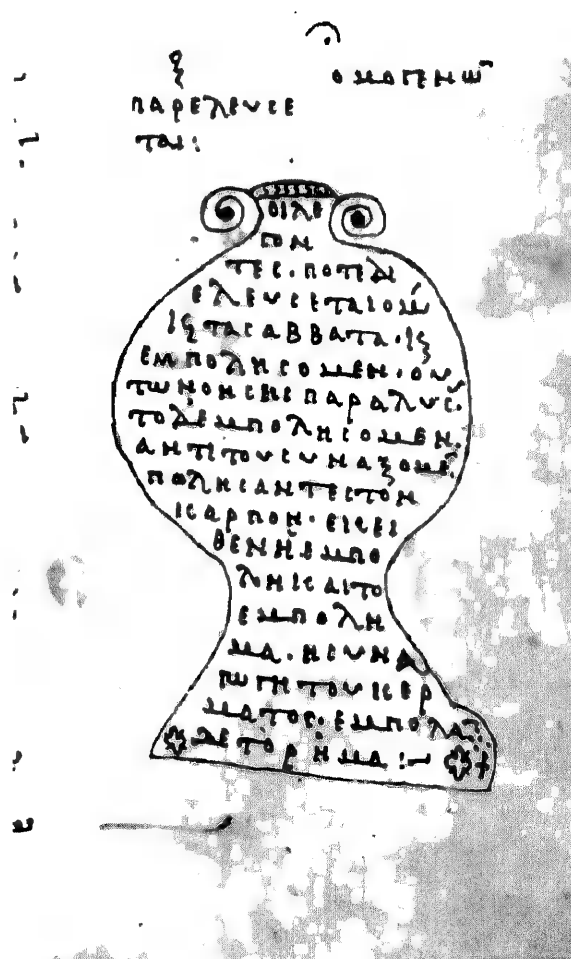 ξ
ομογενῶ
παρελευσε
ται:
οιλε
γον
τες. ποτε δι
ελευσεται ο μη
κς τα σαββατα. κς
εμπολησομεν. ουκ
το δε εμπολησομεν.
αντι του συναξομε.
πολησαντες τον
καρπον. εισει
θεν ἡ εμπο
λησις αι το
εμπολη
μα. η συνα
γωγη του κερ
ματος. εμπολα
δε τὸ ρῆμα:~